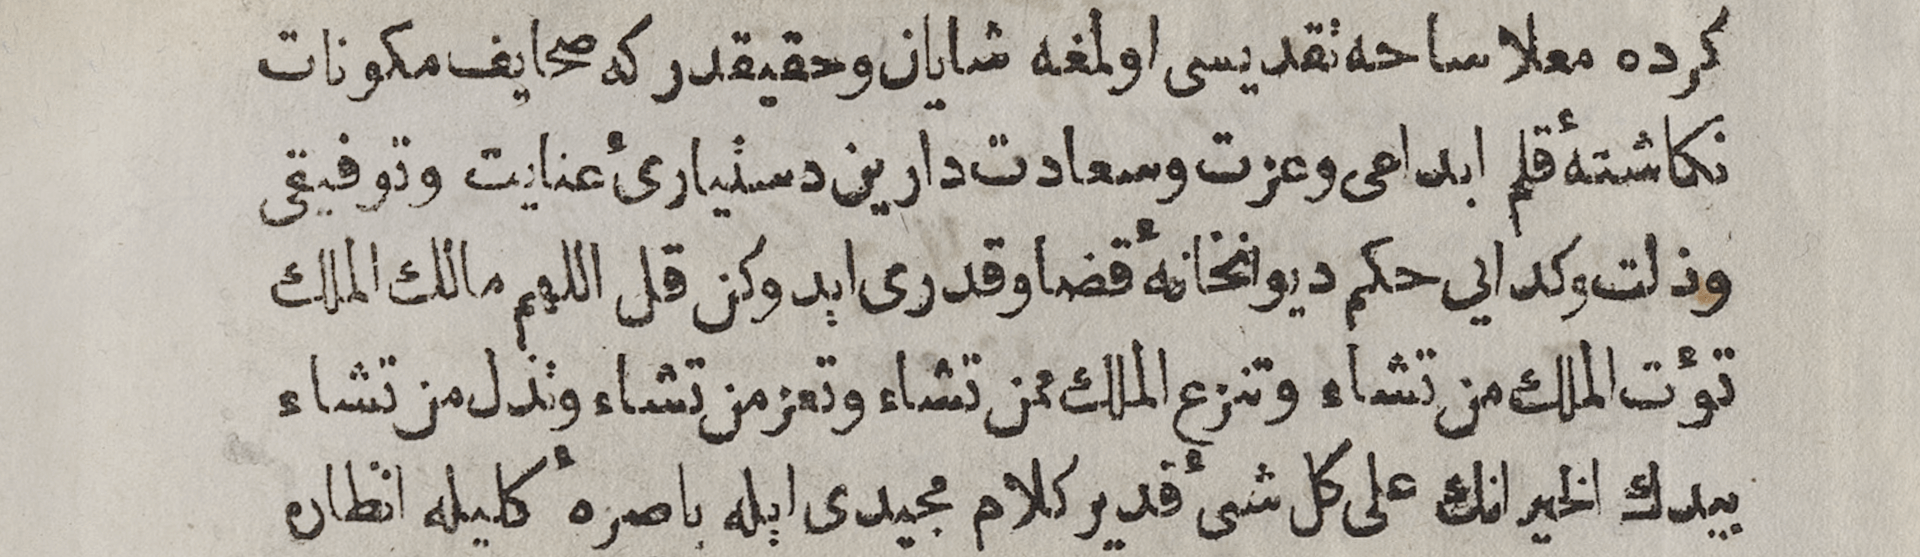 كرده معلا ساحه تقديسى اولمغه شايان وحقيقدر كه صحايف مكونات
نكاشتهٔ قلم ابداعى وعزت وسعادت دارين دستيارىٔ عنايت وتوفيقى
وذلت وكدايى حكم ديوانخانهٔ قضا وقدرى ايدوكن قل اللهم مالك الملك
تؤت الملك من تشاء وتنزع الملك ممن تشاء وتعز من تشاء وتذل من تشاء
بيدك الخير انك على كل شىٔ قدير كلام مجيدى ايله باصرهٔ كليله انظار